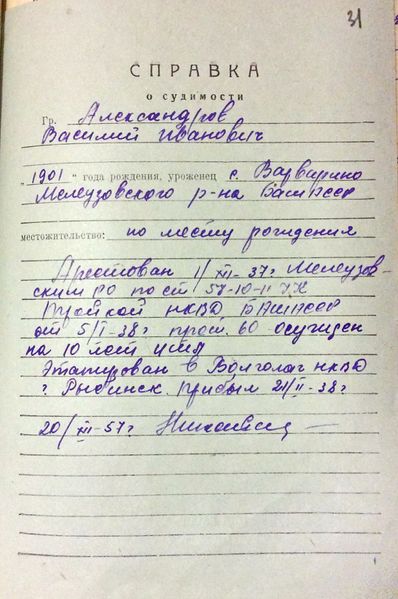 31
СПРАВКА
о судимости
Гр. Александров
Василий Иванович
"1901" года рождения, уроженец с. Варварино
Мелеузовского р-на БашАССР
местожительство: по месту рождения
Арестован 1/XII-37г Мелеузов-
ским РО по ст 58-10-11 УК
Тройкой НКВД БАшАССР
от 5/I-38г прот. 60 осужден
на 10 лет ИТЛ
Этапирован в Волголаг НКВД
г Рыбинск. Прибыл 21/II-38г
20/XII-57г